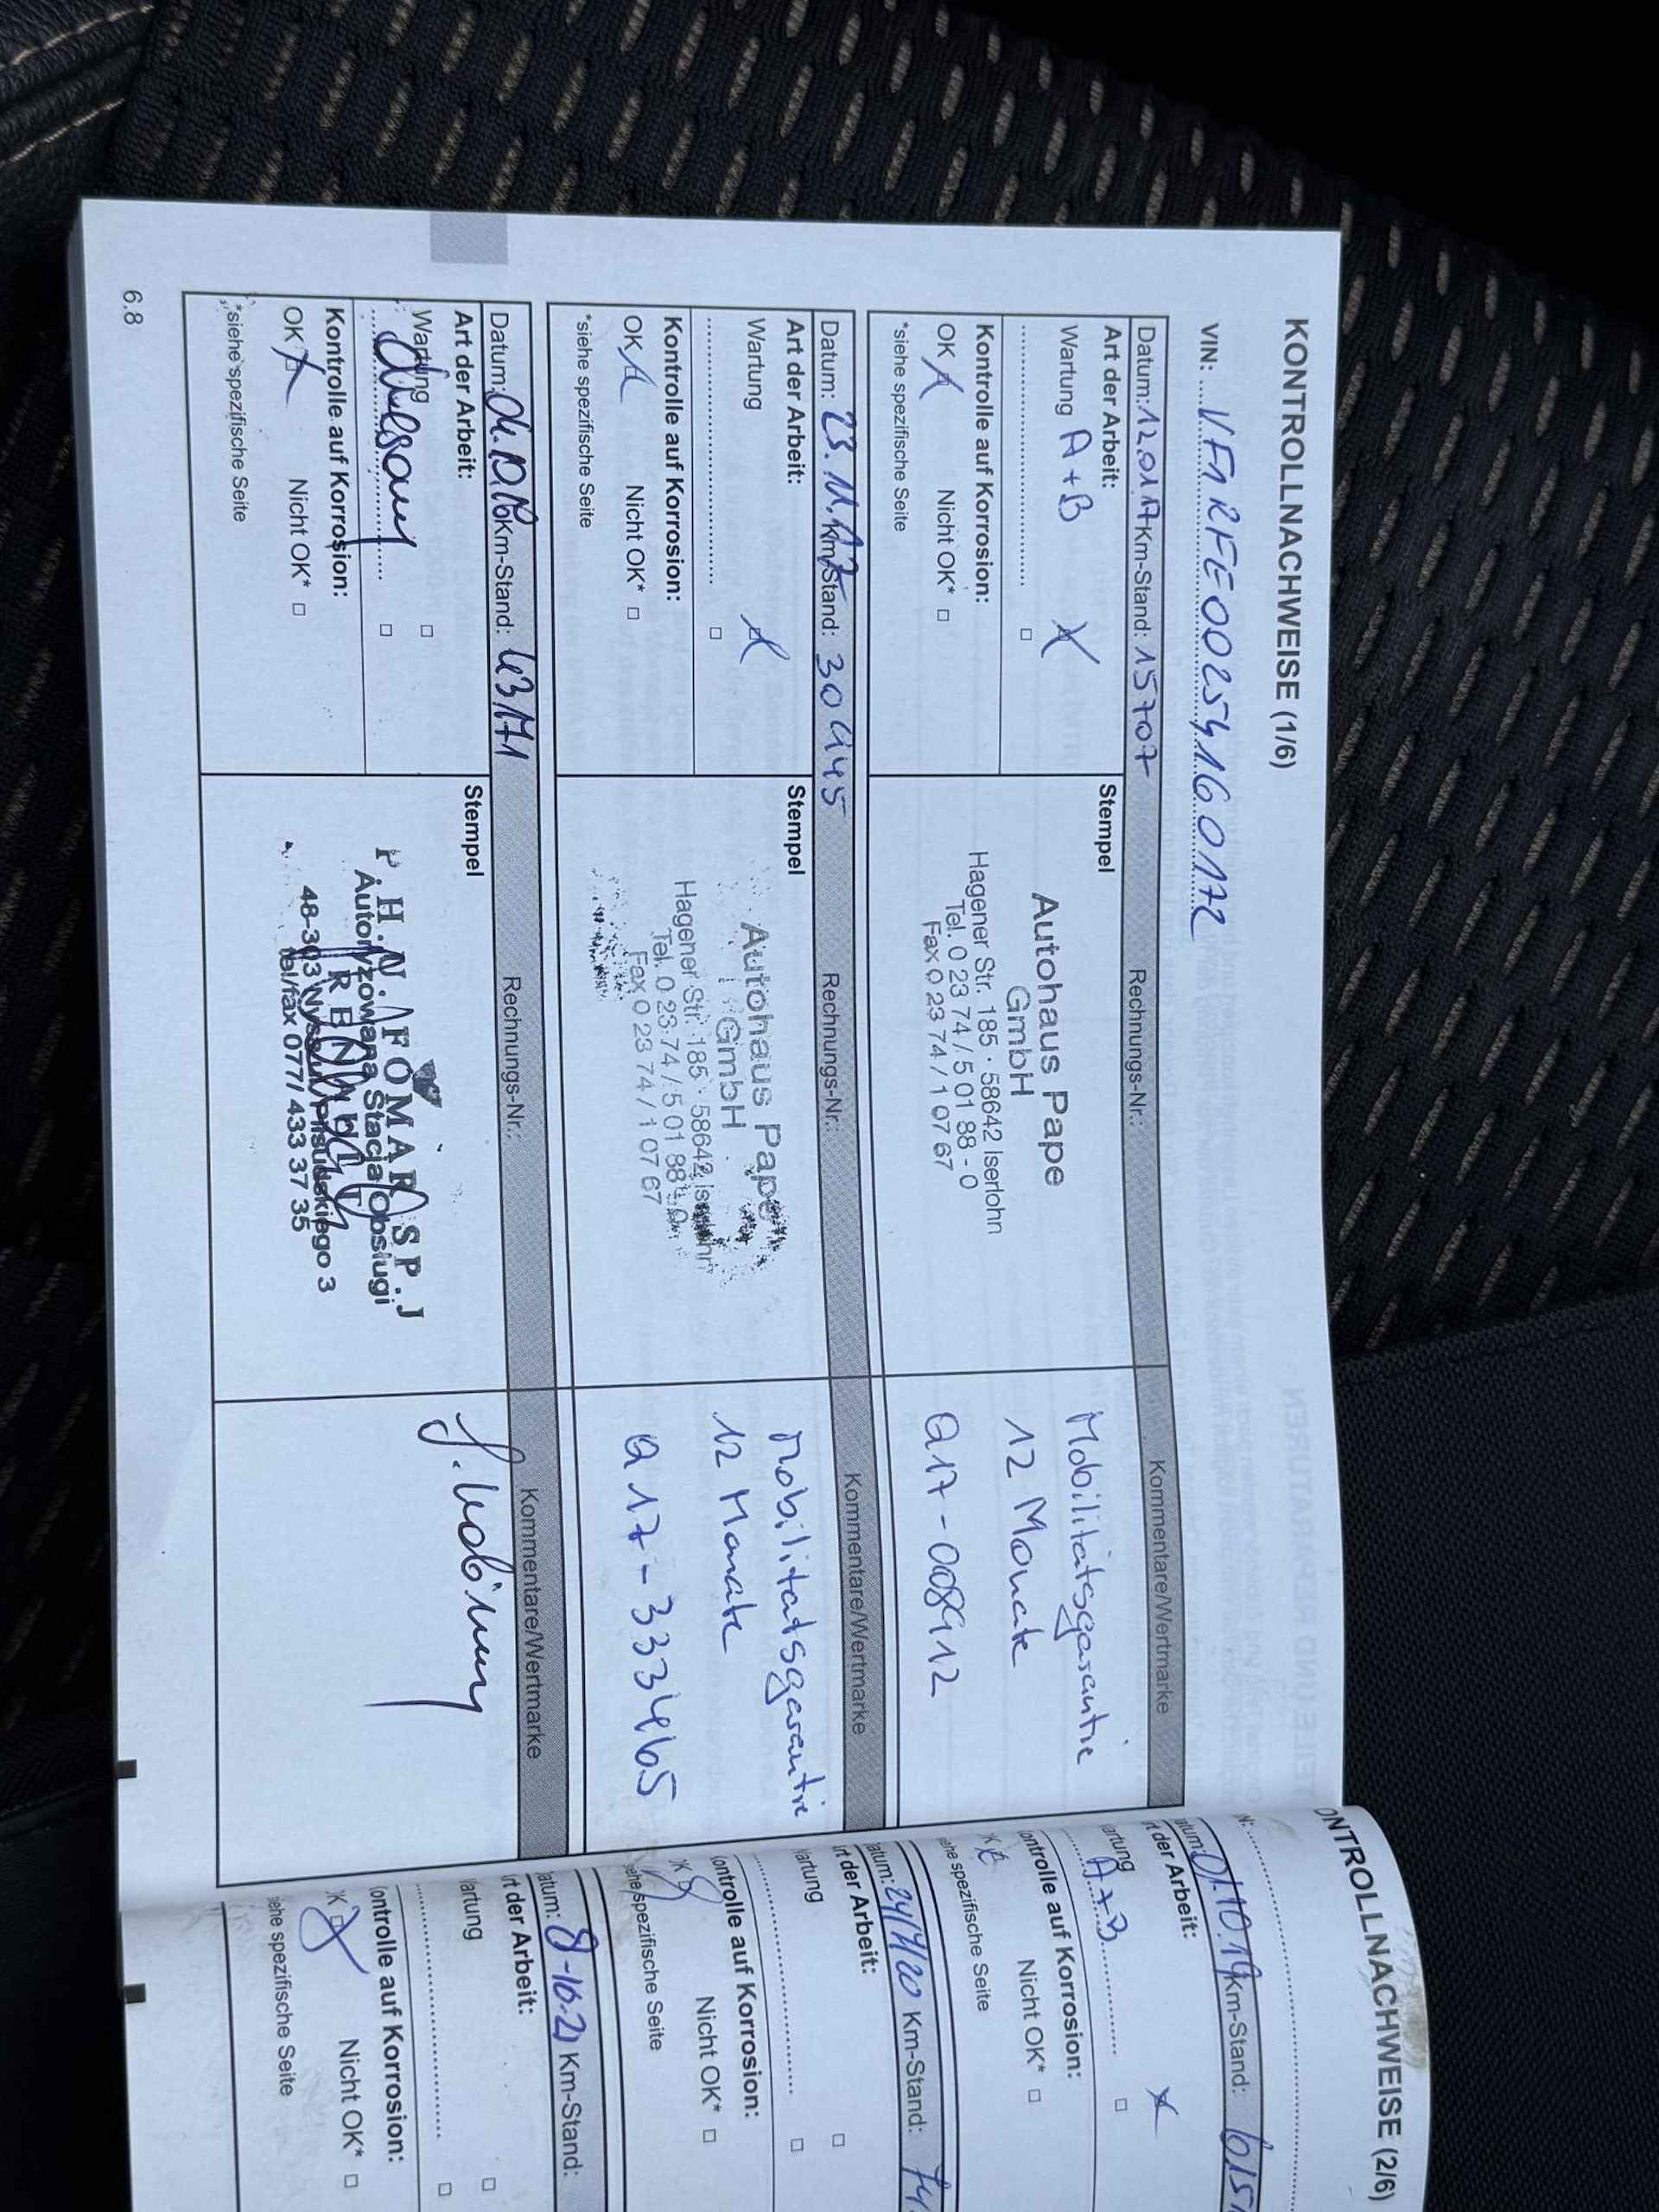 KONTROLLNACHWEISE (1/6)
VIN: VF1RFE00254160172
Datum: 12.01.17 Km-Stand: 15707
Rechnungs-Nr.:
Kommentare/Wertmarke
Art der Arbeit:
Wartung A+B
Kontrolle auf Korrosion:
OK Nicht OK*
*siehe spezifische Seite
Stempel
Autohaus Pape
GmbH
Hagener Str. 185 · 58642 Iserlohn
Tel. 0 23 74 / 5 01 88 - 0
Fax 0 23 74 / 1 07 67
Mobilitätsgarantie
12 Monate
Q17-008912
Datum: 23.11.17 Km-Stand: 30445
Rechnungs-Nr.:
Kommentare/Wertmarke
Art der Arbeit:
Wartung
Kontrolle auf Korrosion:
OK Nicht OK*
*siehe spezifische Seite
Stempel
Autohaus Pape
GmbH
Hagener Str. 185 · 58642 Iserlohn
Tel. 0 23 74 / 5 01 88 - 0
Fax 0 23 74 / 1 07 67
Mobilitätsgarantie
12 Monate
Q17-333465
Datum: Km-Stand: 43171
Rechnungs-Nr.:
Kommentare/Wertmarke
Art der Arbeit:
Wartung
Kontrolle auf Korrosion:
OK Nicht OK*
*siehe spezifische Seite
Stempel
P.H.N. FOMAR SP.J
Autoryzowana Stacja Obsługi
RENAULT
48-303 Nysa, ul. Piłsudskiego 3
tel/fax 077/ 433 37 35
6.8
ONTROLLNACHWEISE (2/6)
N:
atum: 01.10.19 Km-Stand:
rt der Arbeit:
artung A+B
ontrolle auf Korrosion:
K Nicht OK*
ehe spezifische Seite
atum: 24/9/20 Km-Stand:
rt der Arbeit:
artung
ontrolle auf Korrosion:
K Nicht OK*
ehe spezifische Seite
atum: 8-10.21 Km-Stand:
rt der Arbeit:
artung
ontrolle auf Korrosion:
K Nicht OK*
iehe spezifische Seite